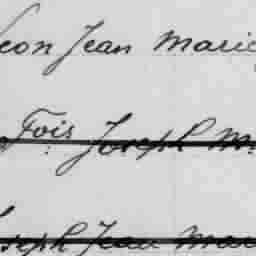 Leon Jean Marie
Fois Joseph M.
Joseph Jean Marie